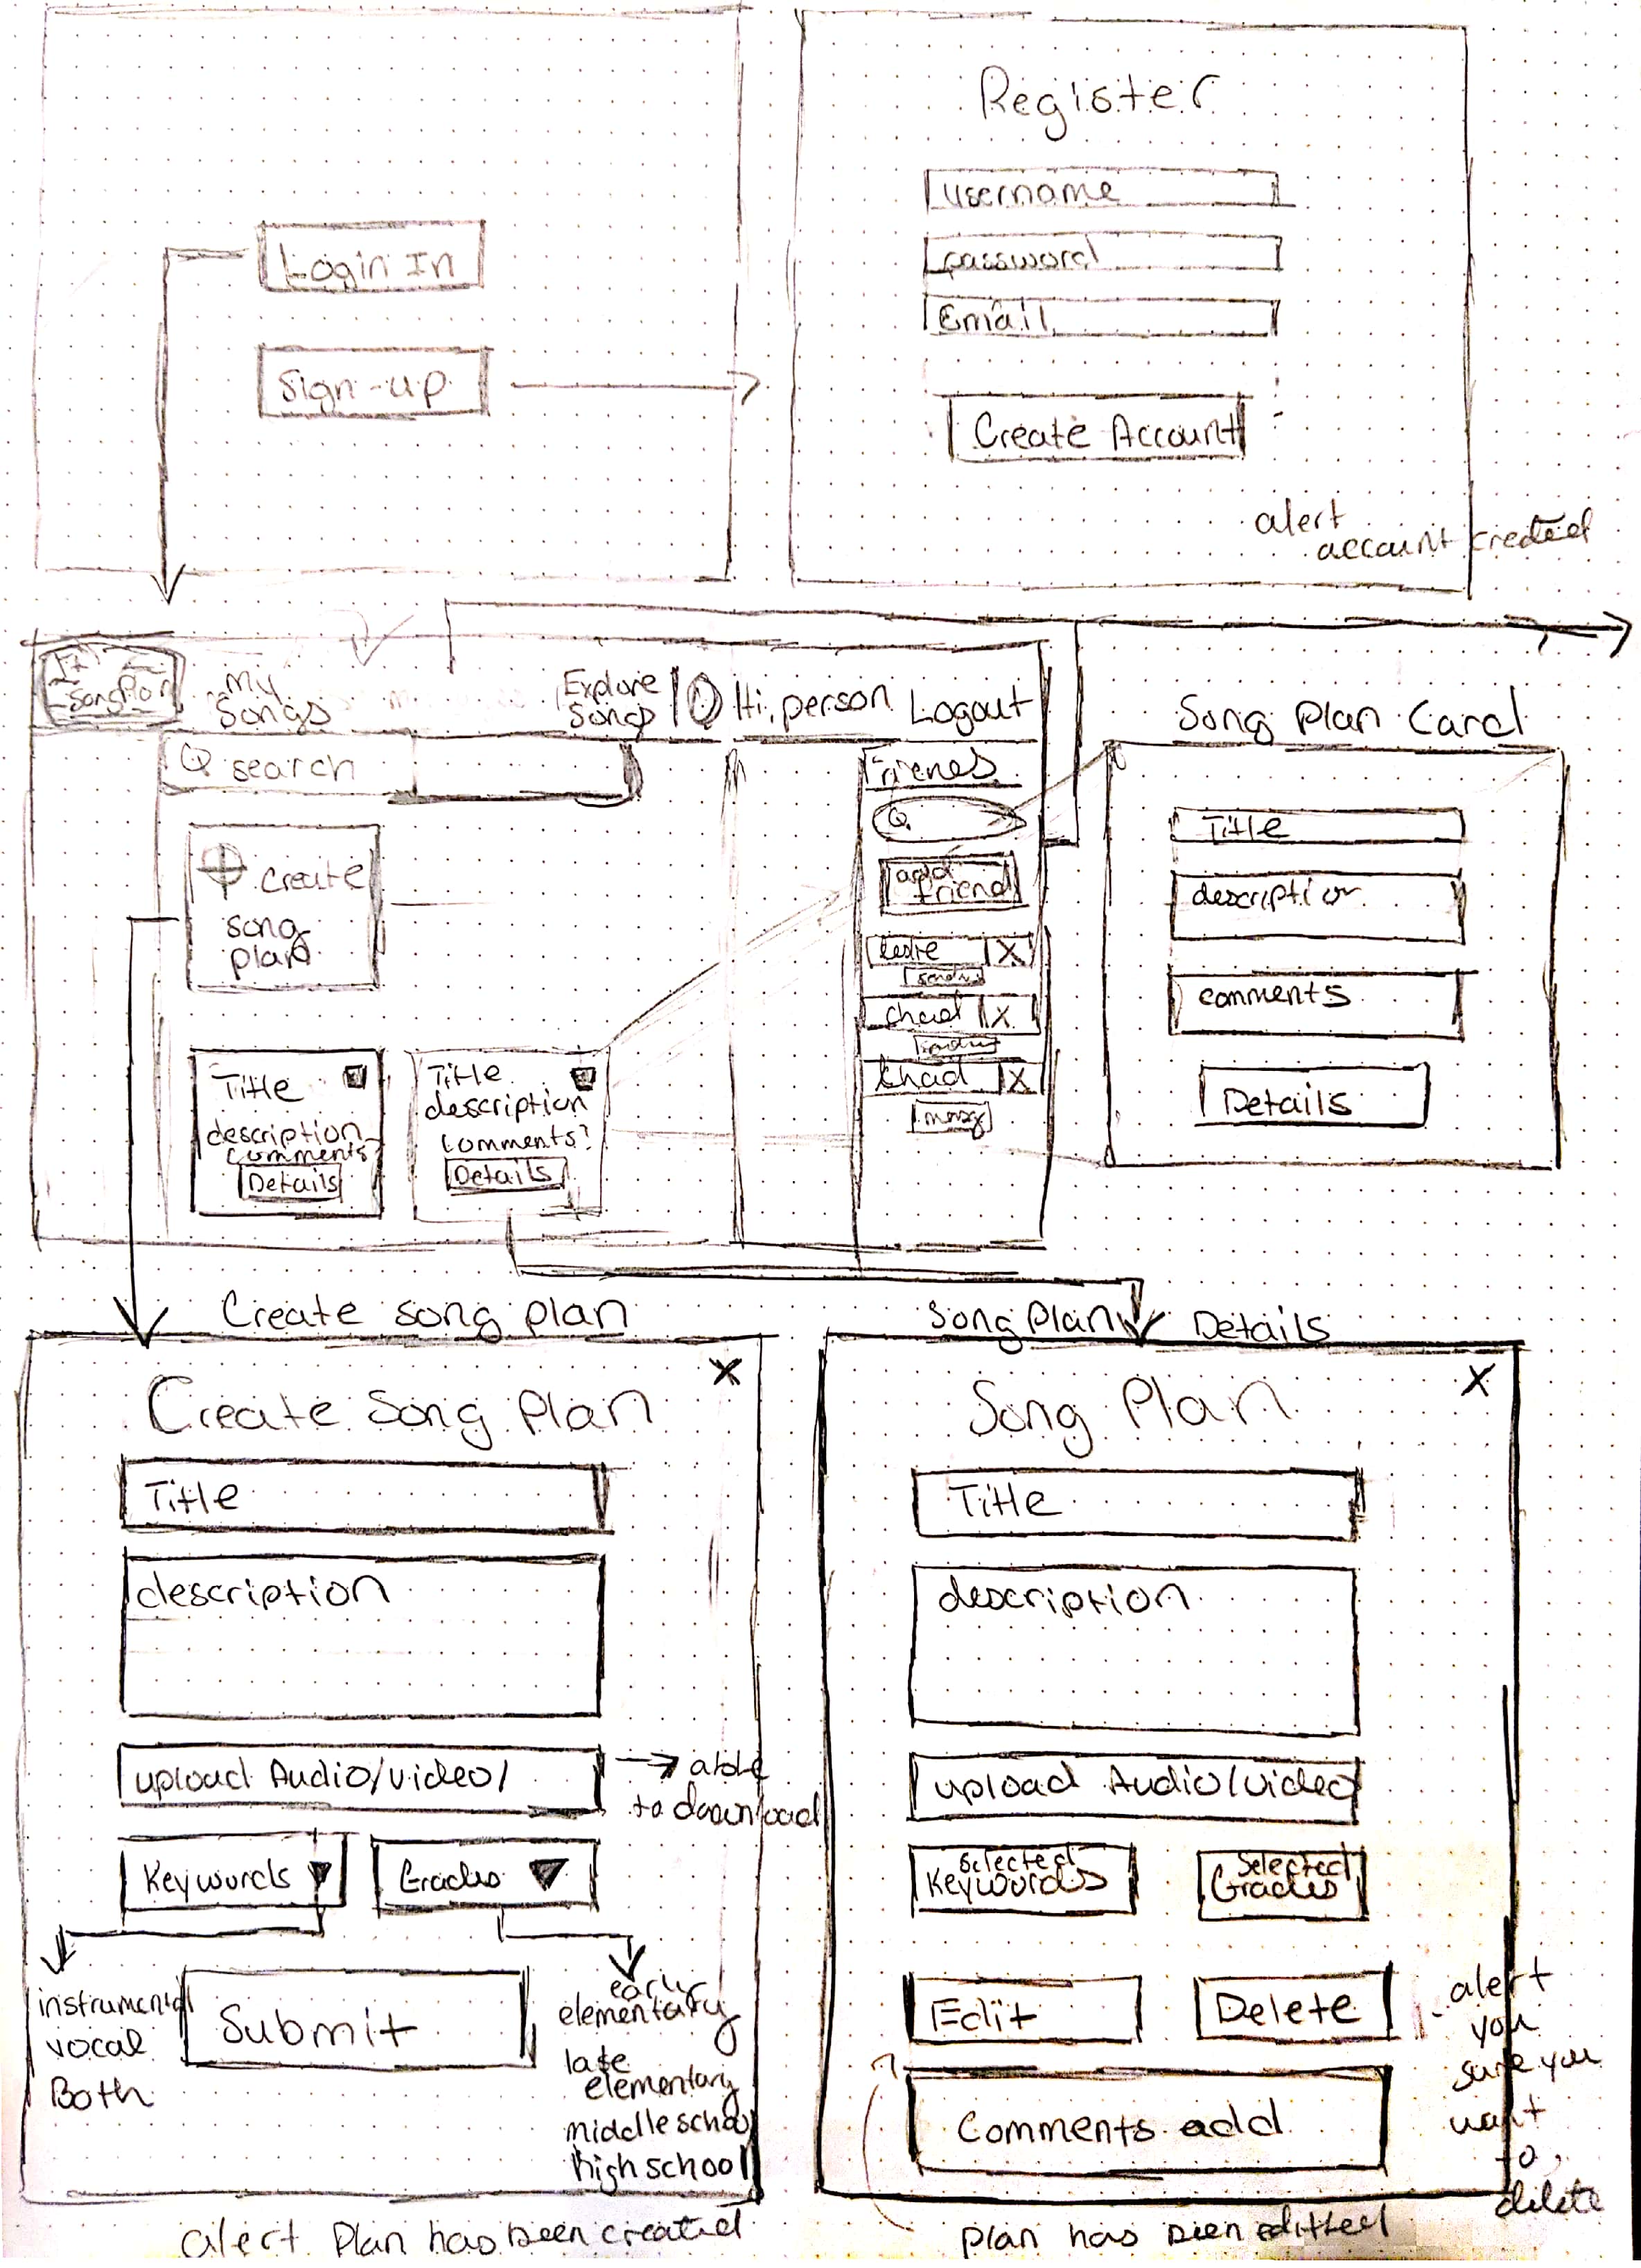 Login In
Sign-up
Register
username
password
Email
Create Account
alert
account created
SongPlan
My
Songs
Explore
Songs
Hi, person
Logout
search
Create
song
plan
Title
description
comments?
Details
Title
description
comments?
Details
Friends
add
friend
X
chad
X
chad
X
Song Plan Card
Title
description
comments
Details
Create song plan
X
Create Song Plan
Title
description
upload Audio/video/
able
to download
Keywords
Grades
instrumental
vocal
Both
Submit
early
elementary
late
elementary
middle school
high school
alert Plan has been created
Song Plan Details
X
Song Plan
Title
description
upload Audio/video
Selected
Keywords
Selected
Grades
Edit
Delete
alert
you
sure you
want
to
delete
Comments add
plan has been editted